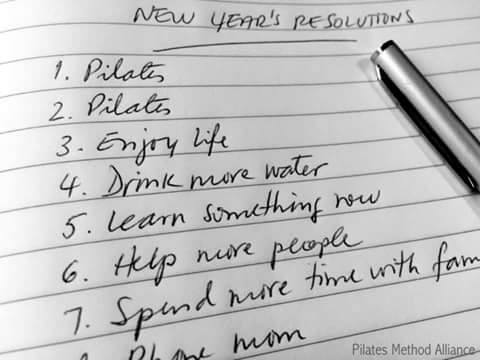 NEW YEAR'S RESOLUTIONS
1. Pilates
2. Pilates
3. Enjoy life
4. Drink more water
5. Learn something new
6. Help more people
7. Spend more time with fam
Phone mom
Pilates Method Alliance